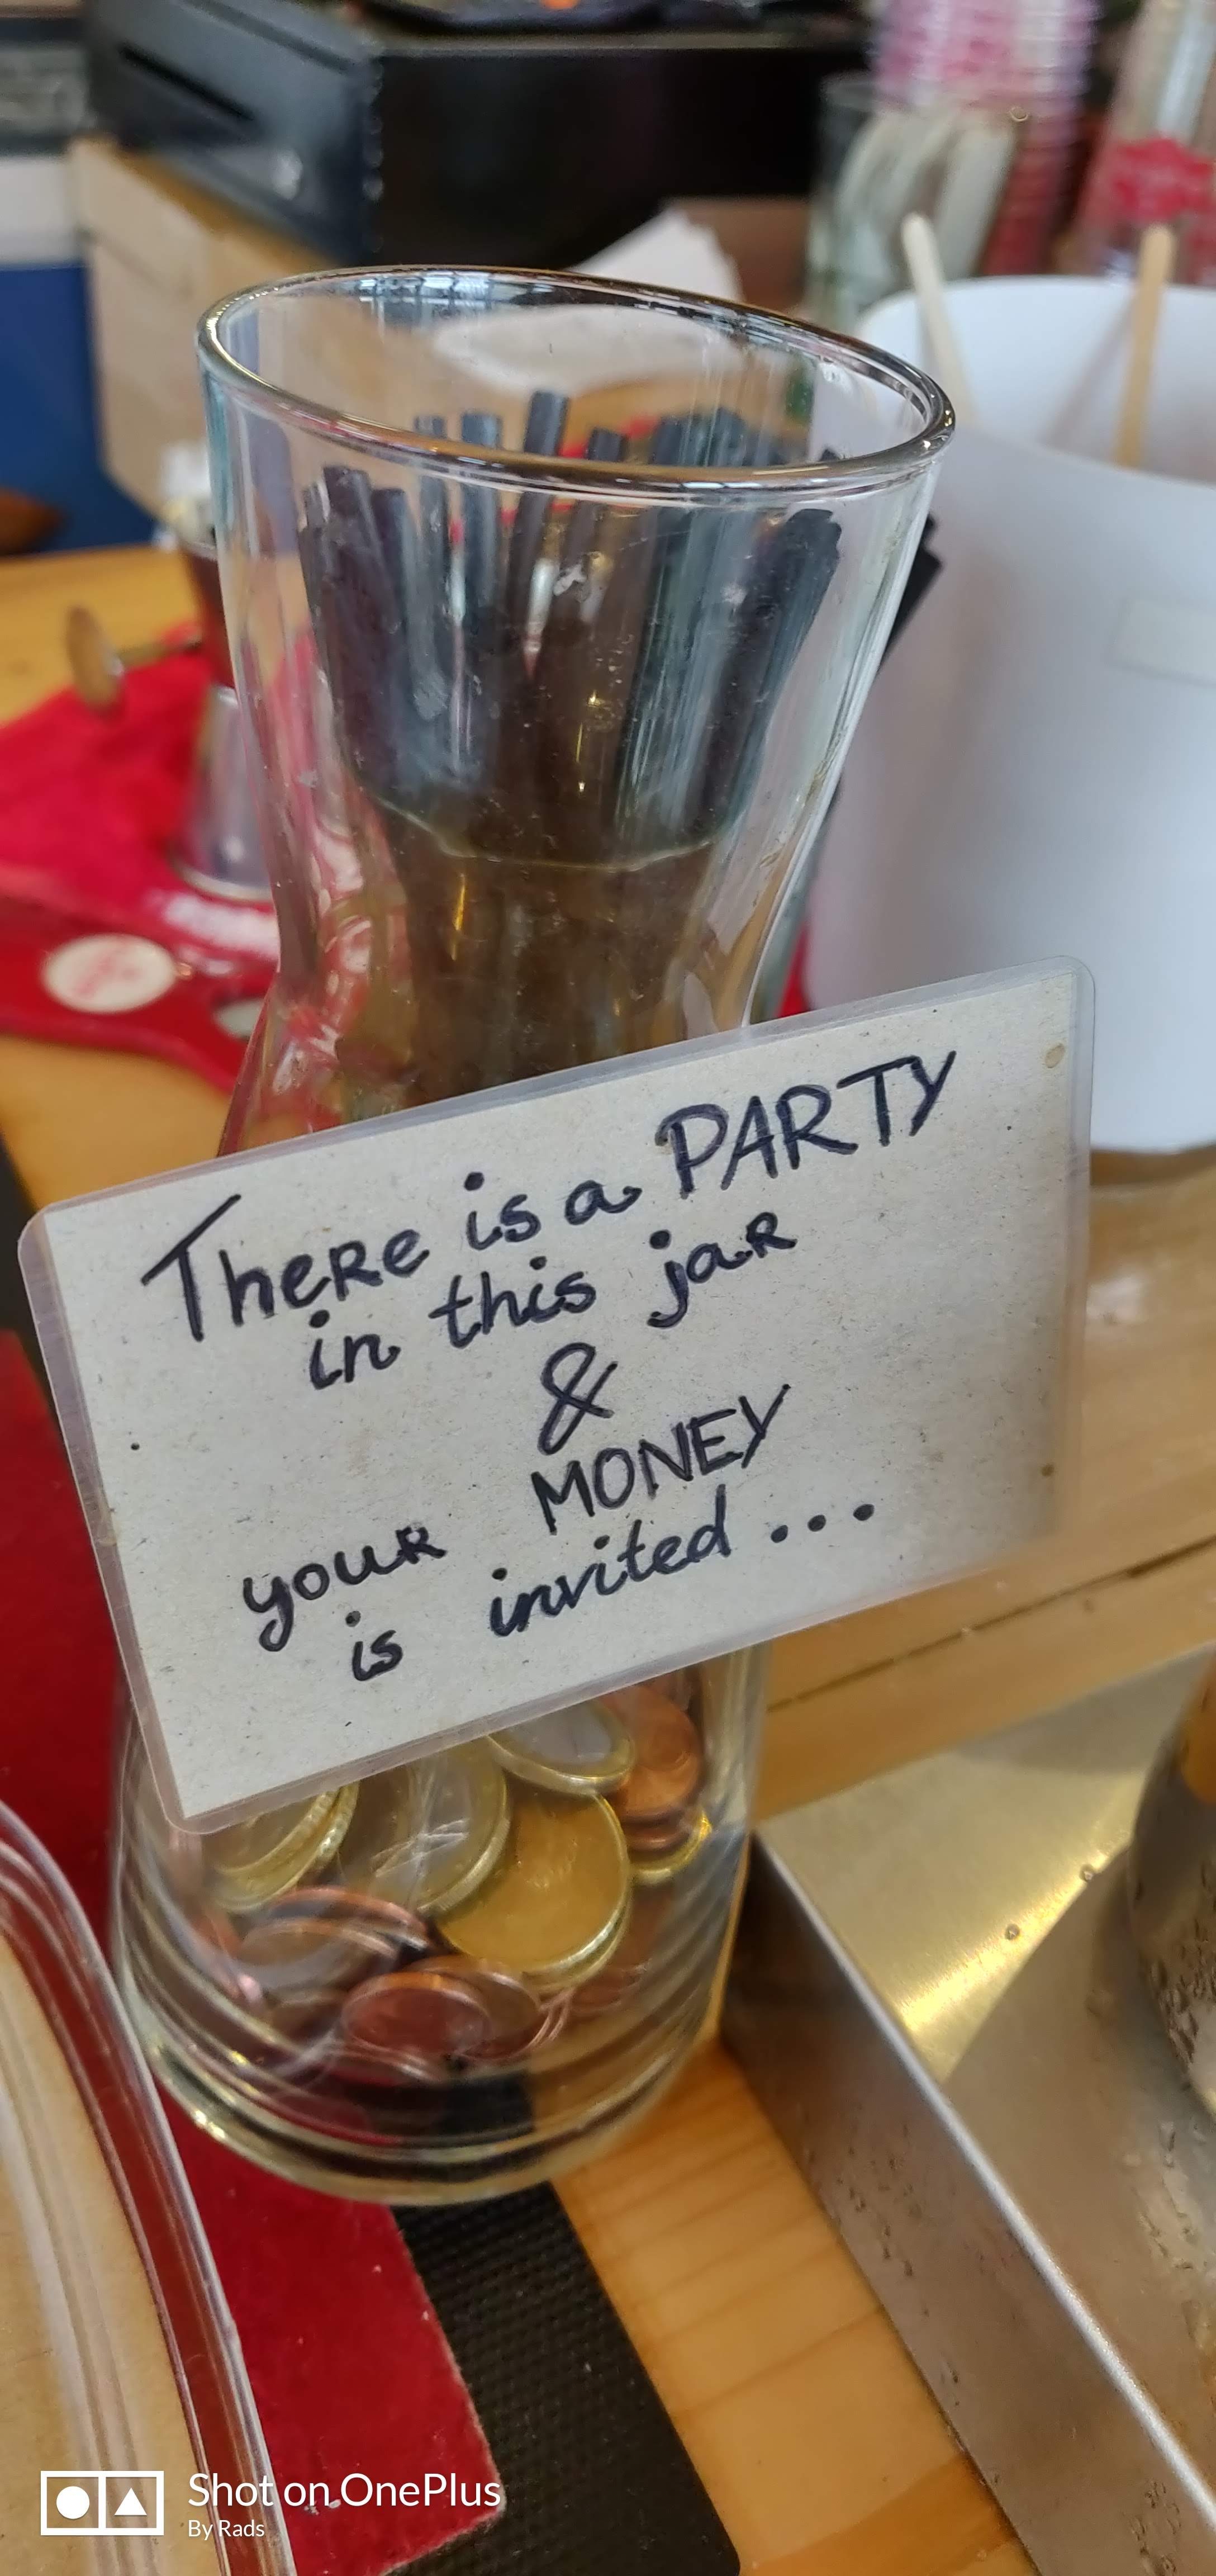 There is a PARTY
in this jar
&
your MONEY
is invited...
Shot on OnePlus
By Rads